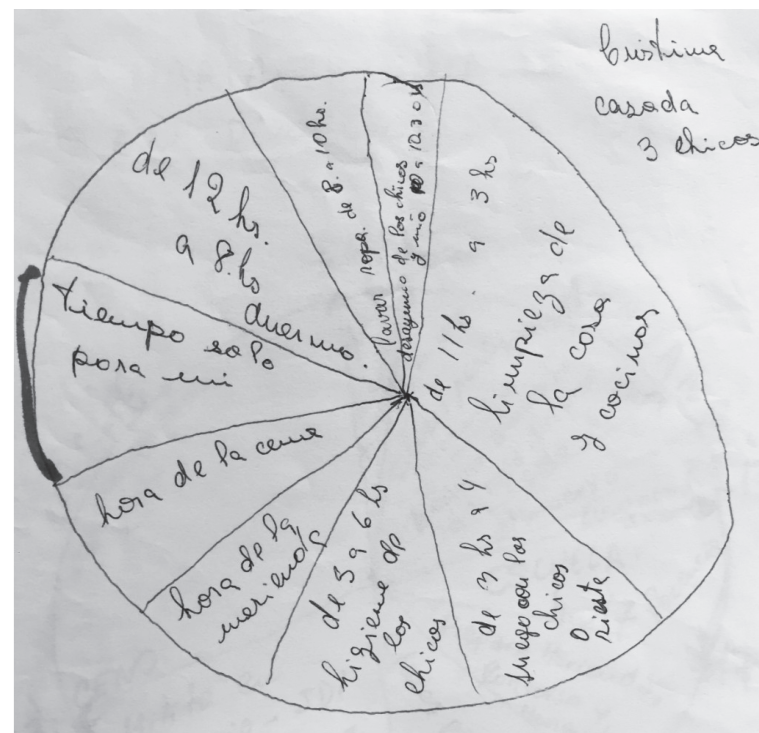 Cristina
casada
3 chicos
de 12 hs.
a 8. hs
duermo.
lavar ropa. de 8. a 10 hs.
desayuno de los chicos
y mio 10 a 10 30 hs
de 11 hs. a 3 hs
limpieza de
la casa
y cocinar
de 3 hs a 4
juego con los
chicos
o sieste
de 5 a 6 hs
higiene de
los
chicos
hora de la
merienda
hora de la cena
tiempo solo
para mi